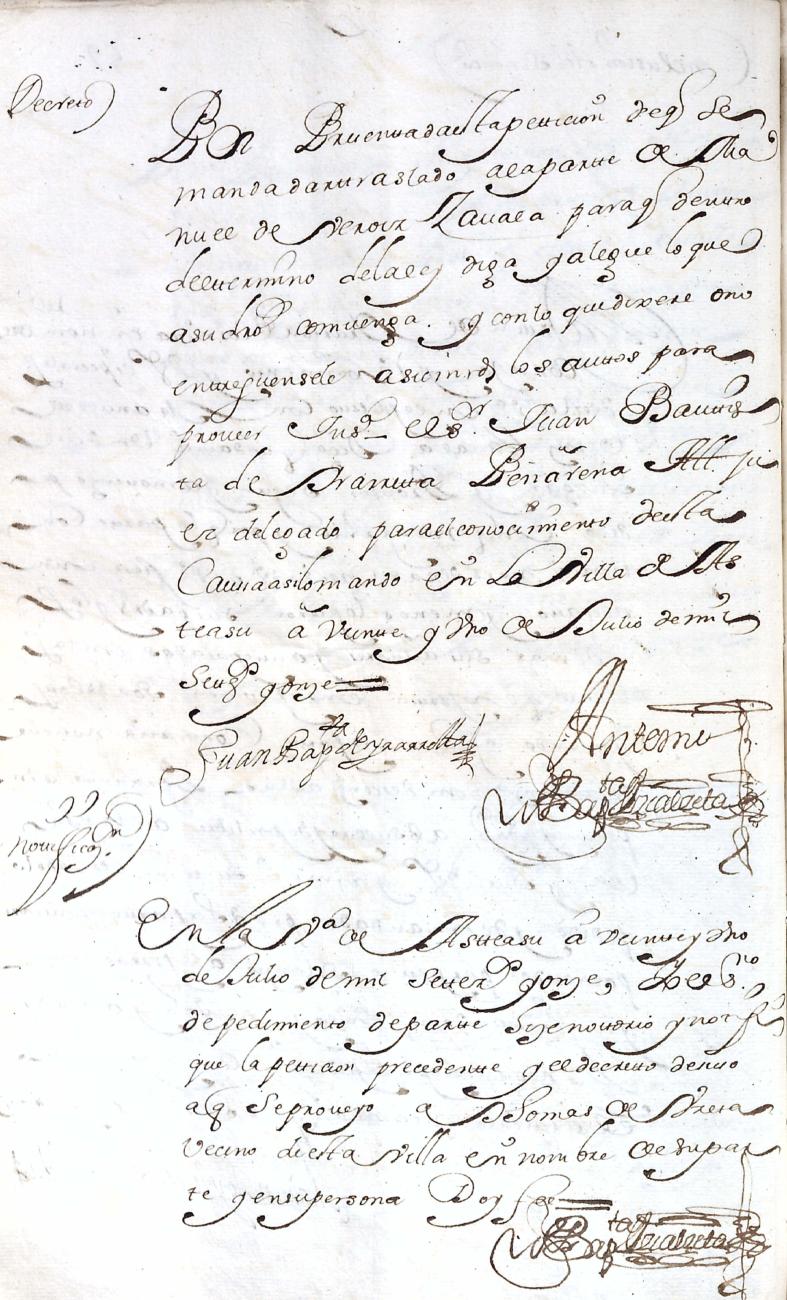 Decreto
Por Presentada esta peticion de q̃ se
manda dar traslado a la parte de Ma
nuel de Veroiz Zavala para q̃ dentro
del termino de la ley diga y alegue lo que
a su dro comvenga. y con lo que dixere o no
entreguensele a su mrd los autos para
proveer Jusa el sr Juan Bautis
ta de Yrarreta Peñarena Alle ju
ez delegado para el conocimiento de esta
Caussa asi lo mando en La Villa de As
teasu â veinte y ocho de Julio de mil
Setezs y onze=
Juan Bapta de Yrarreta
Antemi
Bapta de Yrialzeta
notificon
En la Va de Asteasu â veinte y ocho
de Julio de mil Setezs y onze, Yo el sno
de pedimiento de parte hize notorio y notifi
que la peticion precedente y el decreto de suso
a q̃ se proveyo a Thomas de Yreta
Vecino de esta Villa en nombre de su par
te y en su persona Doy fee=
Bapta de Yrialzeta